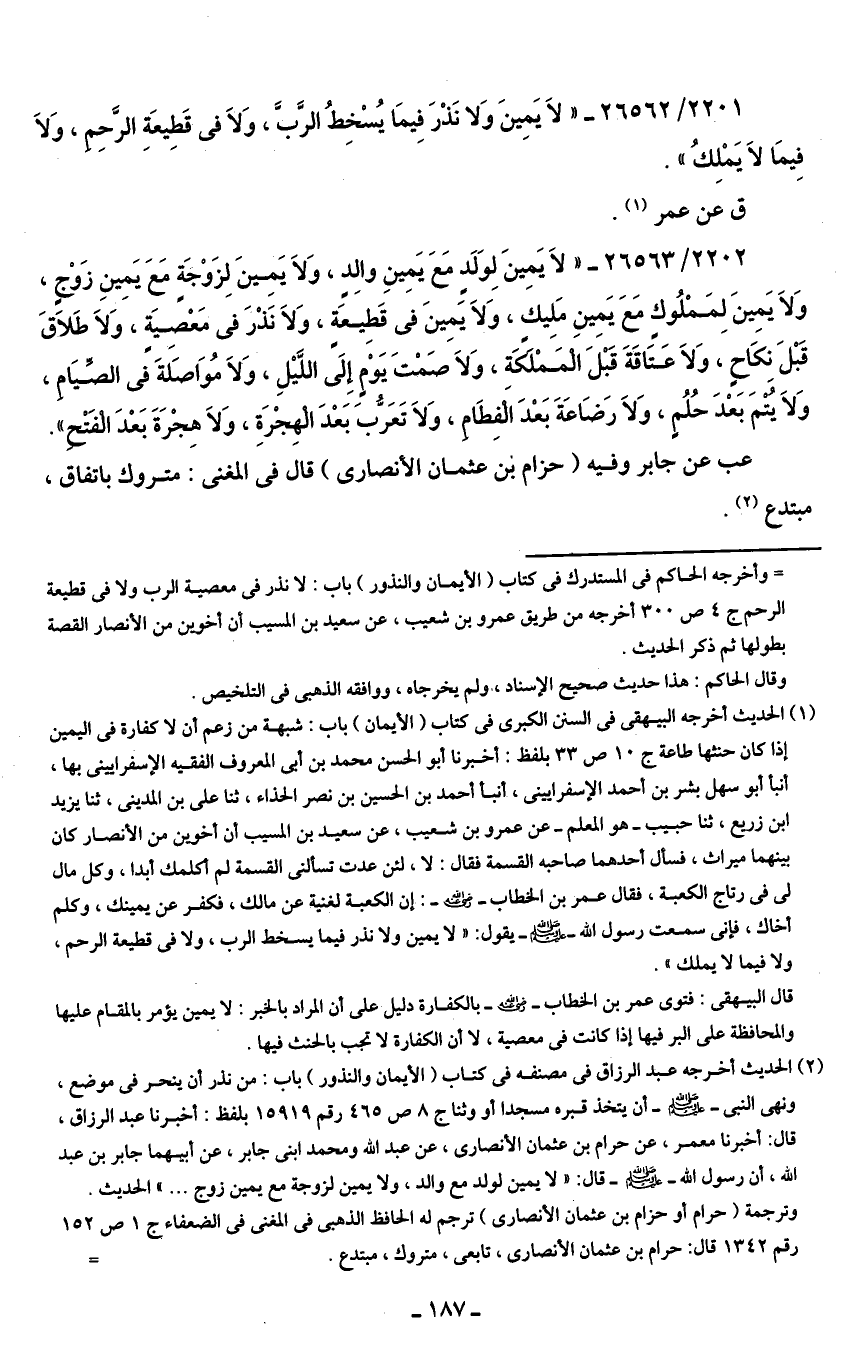 ٢٦٥٦٢/٢٢٠١ ـ « لاَ يَمِينَ وَلا نَذْرَ فِيمَا يُسْخِطُ الرَّبَّ ، وَلاَ فى قَطِيعَةِ الرَّحِمِ ، وَلاَ
فِيمَا لاَ يَمْلِكُ » .
ق عن عمر (١) .
٢٦٥٦٣/٢٢٠٢ ـ « لاَ يَمِينَ لِولَدٍ مَعَ يَمِينِ والِدٍ ، وَلاَ يَمِينَ لِزَوْجَةٍ مَعَ يَمِينِ زَوْجٍ ،
وَلاَ يَمِينَ لِمَمْلُوكٍ مَعَ يَمِينِ مَلِيكٍ ، وَلاَ يَمِينَ فى قَطِيعَةٍ ، وَلاَ نَذْرَ فى مَعْصِيَةٍ ، وَلاَ طَلاَقَ
قَبْلَ نِكَاحٍ ، وَلاَ عَتَاقَةَ قَبْلَ الْمَمْلَكَةِ ، وَلاَ صَمْتَ يَوْمٍ إِلَى اللَّيْلِ ، وَلاَ مُوَاصَلَةَ فى الصِّيَامِ ،
وَلاَ يُتْمَ بَعْدَ حُلُمٍ ، وَلاَ رَضَاعَةَ بَعْدَ الْفِطَامِ ، وَلاَ تَعَرُّبَ بَعْدَ الْهِجْرَةِ ، وَلاَ هِجْرَةَ بَعْدَ الْفَتْحِ ».
عب عن جابر وفيه ( حزام بن عثمان الأنصارى ) قال فى المغنى : متروك باتفاق ،
مبتدع (٢) .
= وأخرجه الحاكم فى المستدرك فى كتاب ( الأيمان والنذور ) باب : لا نذر فى معصية الرب ولا فى قطيعة
الرحم ج ٤ ص ٣٠٠ أخرجه من طريق عمرو بن شعيب ، عن سعيد بن المسيب أن أخوين من الأنصار القصة
بطولها ثم ذكر الحديث .
وقال الحاكم : هذا حديث صحيح الإسناد ، ولم يخرجاه ، ووافقه الذهبى فى التلخيص .
(١) الحديث أخرجه البيهقى فى السنن الكبرى فى كتاب ( الأيمان ) باب : شبهة من زعم أن لا كفارة فى اليمين
إذا كان حنثها طاعة ج ١٠ ص ٣٣ بلفظ : أخبرنا أبو الحسن محمد بن أبى المعروف الفقيه الإسفرايينى بها ،
أنبأ أبو سهل بشر بن أحمد الإسفرايينى ، أنبأ أحمد بن الحسين بن نصر الحذاء ، ثنا على بن المدينى ، ثنا يزيد
ابن زريع ، ثنا حبيب ـ هو المعلم ـ عن عمرو بن شعيب ، عن سعيد بن المسيب أن أخوين من الأنصار كان
بينهما ميراث ، فسأل أحدهما صاحبه القسمة فقال : لا ، لئن عدت تسألنى القسمة لم أكلمك أبدا ، وكل مال
لى فى رتاج الكعبة ، فقال عمر بن الخطاب ـ رضي الله عنه ـ : إن الكعبة لغنية عن مالك ، فكفر عن يمينك ، وكلم
أخاك ، فإنى سمعت رسول الله ـ ﷺ ـ يقول: « لا يمين ولا نذر فيما يسخط الرب ، ولا فى قطيعة الرحم ،
ولا فيما لا يملك » .
قال البيهقى : فتوى عمر بن الخطاب ـ رضي الله عنه ـ بالكفارة دليل على أن المراد بالخبر : لا يمين يؤمر بالمقام عليها
والمحافظة على البر فيها إذا كانت فى معصية ، لا أن الكفارة لا تجب بالحنث فيها .
(٢) الحديث أخرجه عبد الرزاق فى مصنفه فى كتاب ( الأيمان والنذور ) باب : من نذر أن ينحر فى موضع ،
ونهى النبى ـ ﷺ ـ أن يتخذ قبره مسجدا أو وثنا ج ٨ ص ٤٦٥ رقم ١٥٩١٩ بلفظ : أخبرنا عبد الرزاق ،
قال: أخبرنا معمر ، عن حرام بن عثمان الأنصارى ، عن عبد الله ومحمد ابنى جابر ، عن أبيهما جابر بن عبد
الله ، أن رسول الله ـ ﷺ ـ قال: « لا يمين لولد مع والد ، ولا يمين لزوجة مع يمين زوج ... » الحديث .
وترجمة ( حرام أو حزام بن عثمان الأنصارى ) ترجم له الحافظ الذهبى فى المغنى فى الضعفاء ج ١ ص ١٥٢
رقم ١٣٤٢ قال: حرام بن عثمان الأنصارى ، تابعى ، متروك ، مبتدع . =
ـ ١٨٧ ـ